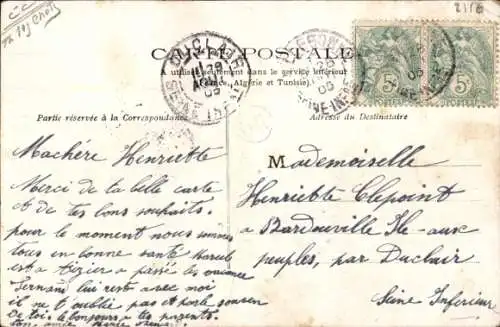 CARTE POSTALE
A utiliser seulement dans le service intérieur
(France, Algérie et Tunisie).
Partie réservée à la Correspondance
Adresse du Destinataire
Ma chère Henriette
Merci de la belle carte
et de tes bons souhaits.
pour le moment nous sommes
tous en bonne santé
est a passé les vacance
Fernand lui rest avec moi
il ne t oublie pas et parle souven
De toi. le bonjours a tes parents.
ton amie
Mademoiselle
Henriette Clepoint
a Bardouville Ile-aux
peuples, par Duclair
Seine Inferieur
DUCLAIR
SEINE INF
5c
5c
2116